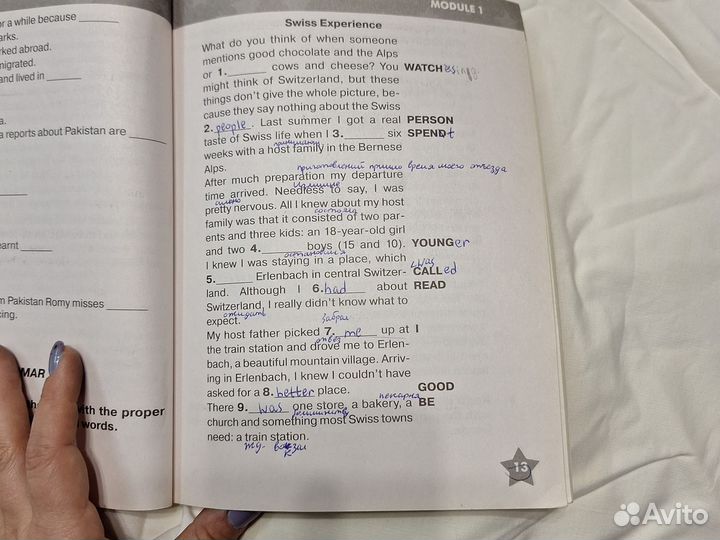 r a while because ______
arks.
rked abroad.
migrated.
and lived in ______
a.
a reports about Pakistan are ______
earnt ______
m Pakistan Romy misses ______
cing.
MAR
with the proper
words.
MODULE 1
Swiss Experience
What do you think of when someone
mentions good chocolate and the Alps
or 1.______ cows and cheese? You WATCH
might think of Switzerland, but these
things don't give the whole picture, be-
cause they say nothing about the Swiss
2. people. Last summer I got a real PERSON
taste of Swiss life when I 3.______ six SPENDt
weeks with a host family in the Bernese
Alps.
приготовлений пришло время моего отъезда
After much preparation my departure
излишне
time arrived. Needless to say, I was
сильно
pretty nervous. All I knew about my host
состояла
family was that it consisted of two par-
ents and three kids: an 18-year-old girl
and two 4.______ boys (15 and 10). YOUNGer
I knew I was staying in a place, which
was
5.______ Erlenbach in central Switzer- CALLed
land. Although I 6. had about READ
Switzerland, I really didn't know what to
ожидать
expect.
забрал
My host father picked 7. me up at I
отвез
the train station and drove me to Erlen-
bach, a beautiful mountain village. Arriv-
ing in Erlenbach, I knew I couldn't have
asked for a 8. better place. GOOD
пекарня
There 9. was one store, a bakery, a BE
church and something most Swiss towns
need: a train station.
13
Avito